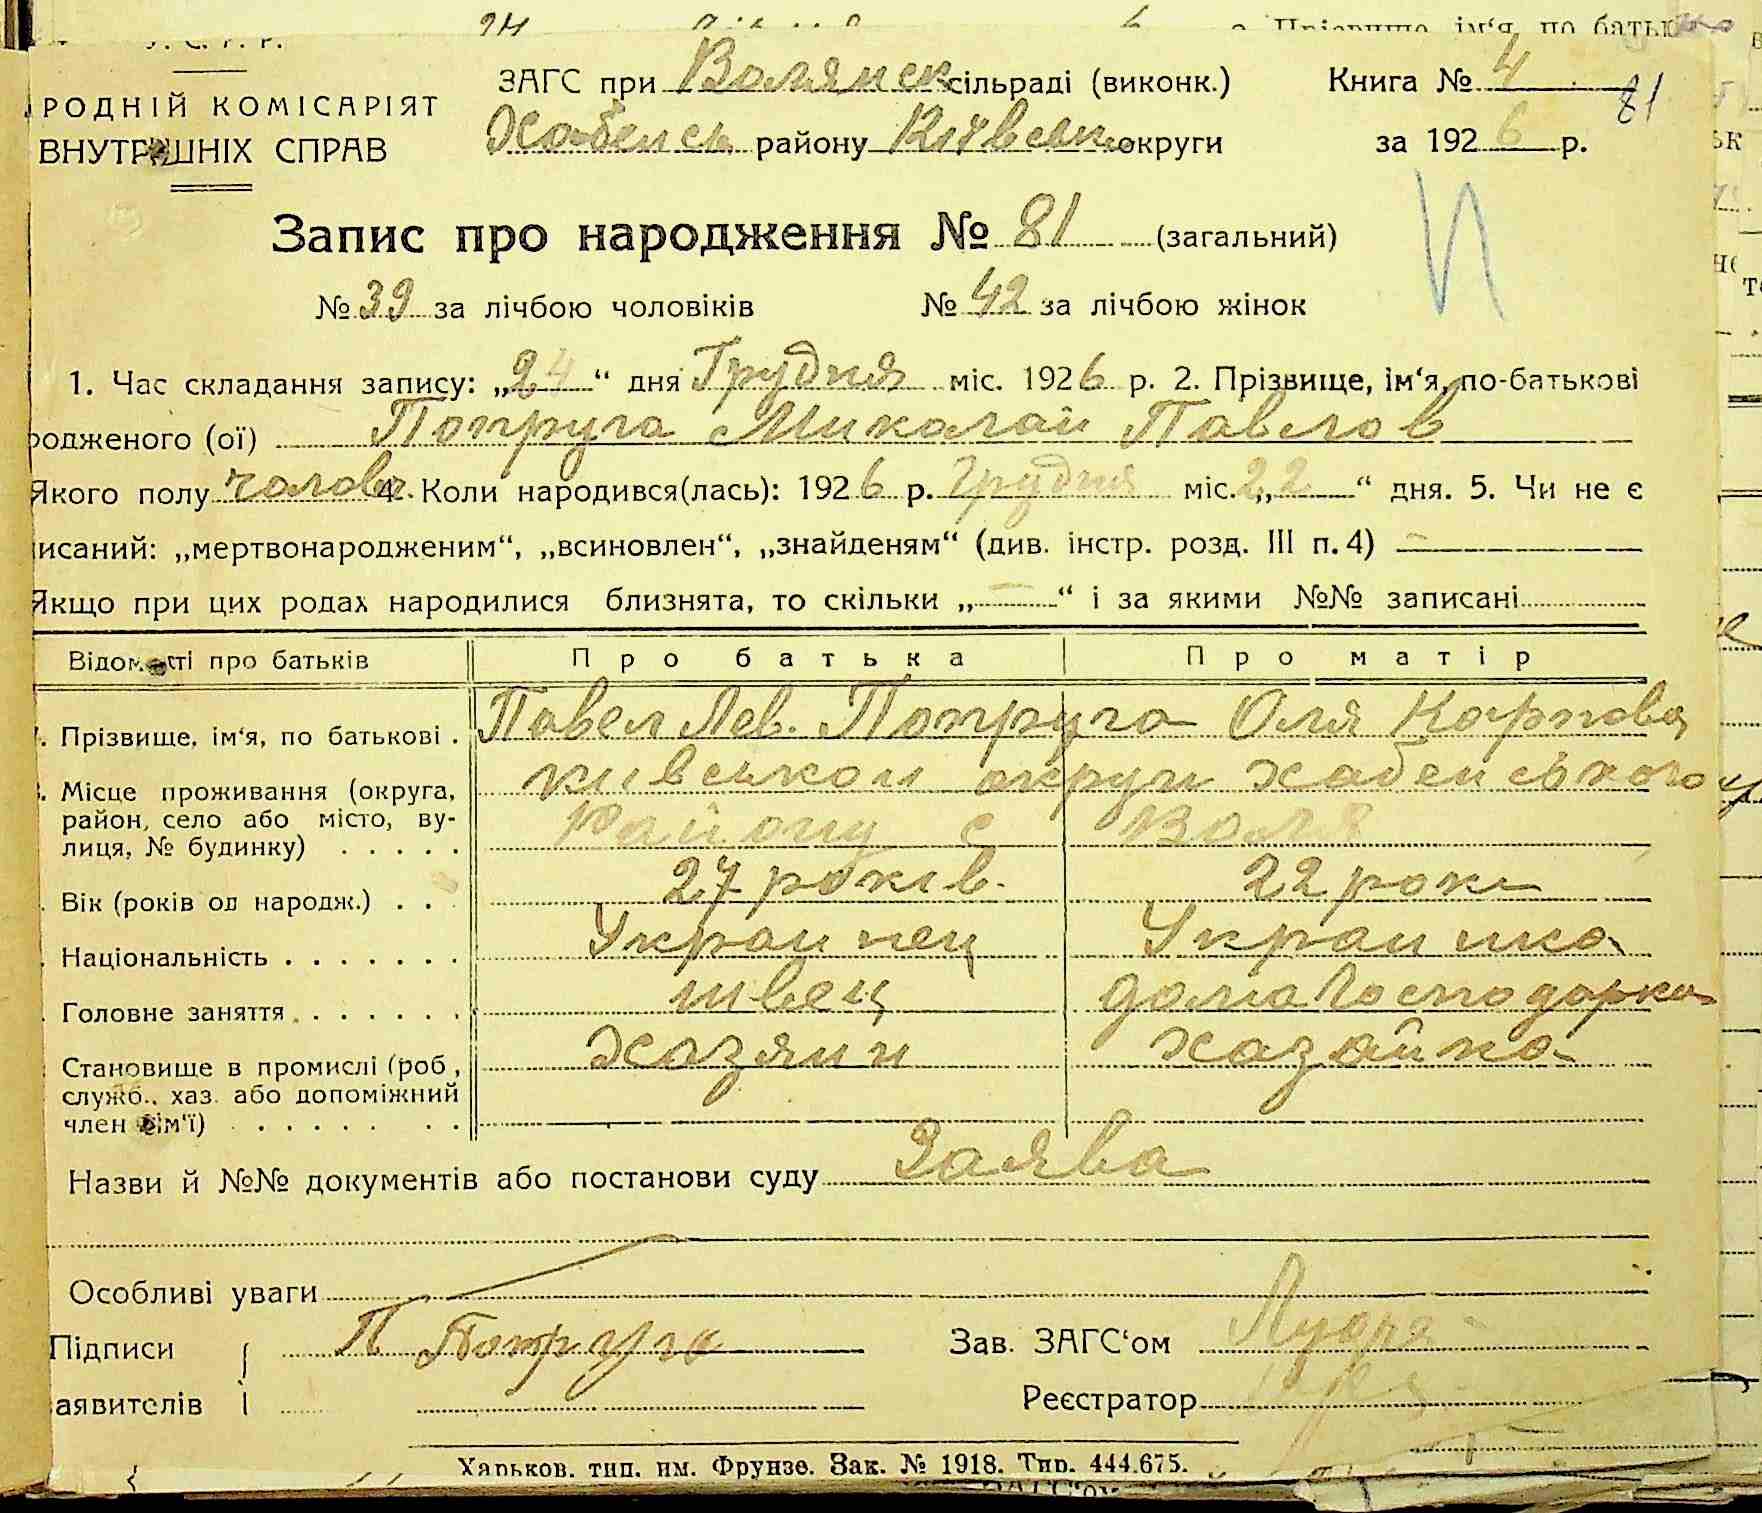 У. С. Р. Р.
РОДНІЙ КОМІСАРІЯТ
ВНУТРІШНІХ СПРАВ
ЗАГС при Волянск сільраді (виконк.)
Хабенсь району Київськ округи
Книга № 4
81
за 1926 р.
Запис про народження № 81 (загальний)
№ 39 за лічбою чоловіків № 42 за лічбою жінок
1. Час складання запису: „24“ дня Грудня міс. 1926 р. 2. Прізвище, ім‘я, по-батькові
родженого (ої) Попруга Микалай Павлов
Якого полу чолов. 4. Коли народився(лась): 1926 р. Грудня міс. „22“ дня. 5. Чи не є
писаний: „мертвонародженим“, „всиновлен“, „знайденям“ (див. інстр. розд. III п. 4) —
Якщо при цих родах народилися близнята, то скільки „—“ і за якими №№ записані
Відомості про батьків Про батька Про матір
Прізвище, ім‘я, по батькові . Павел Лев. Попруга Оля Карпова
Місце проживання (округа, район, село або місто, вулиця, № будинку) . . . . . кивськои округи хабенського
Району с Воля
Вік (років од народж.) . . . 27 років. 22 роки
Національність . . . . . . . Украинец Украинка
Головне заняття . . . . . . . швец домагосподарка
Становище в промислі (роб., служб., хаз. або допоміжний член сім‘ї) . . . . . . . Хазяин хазайка
Назви й №№ документів або постанови суду Заява
Особливі уваги
Підписи П Попруга Зав. ЗАГС‘ом
аявителів Реєстратор
Харьков. тип. им. Фрунзе. Зак. № 1918. Тир. 444.675.